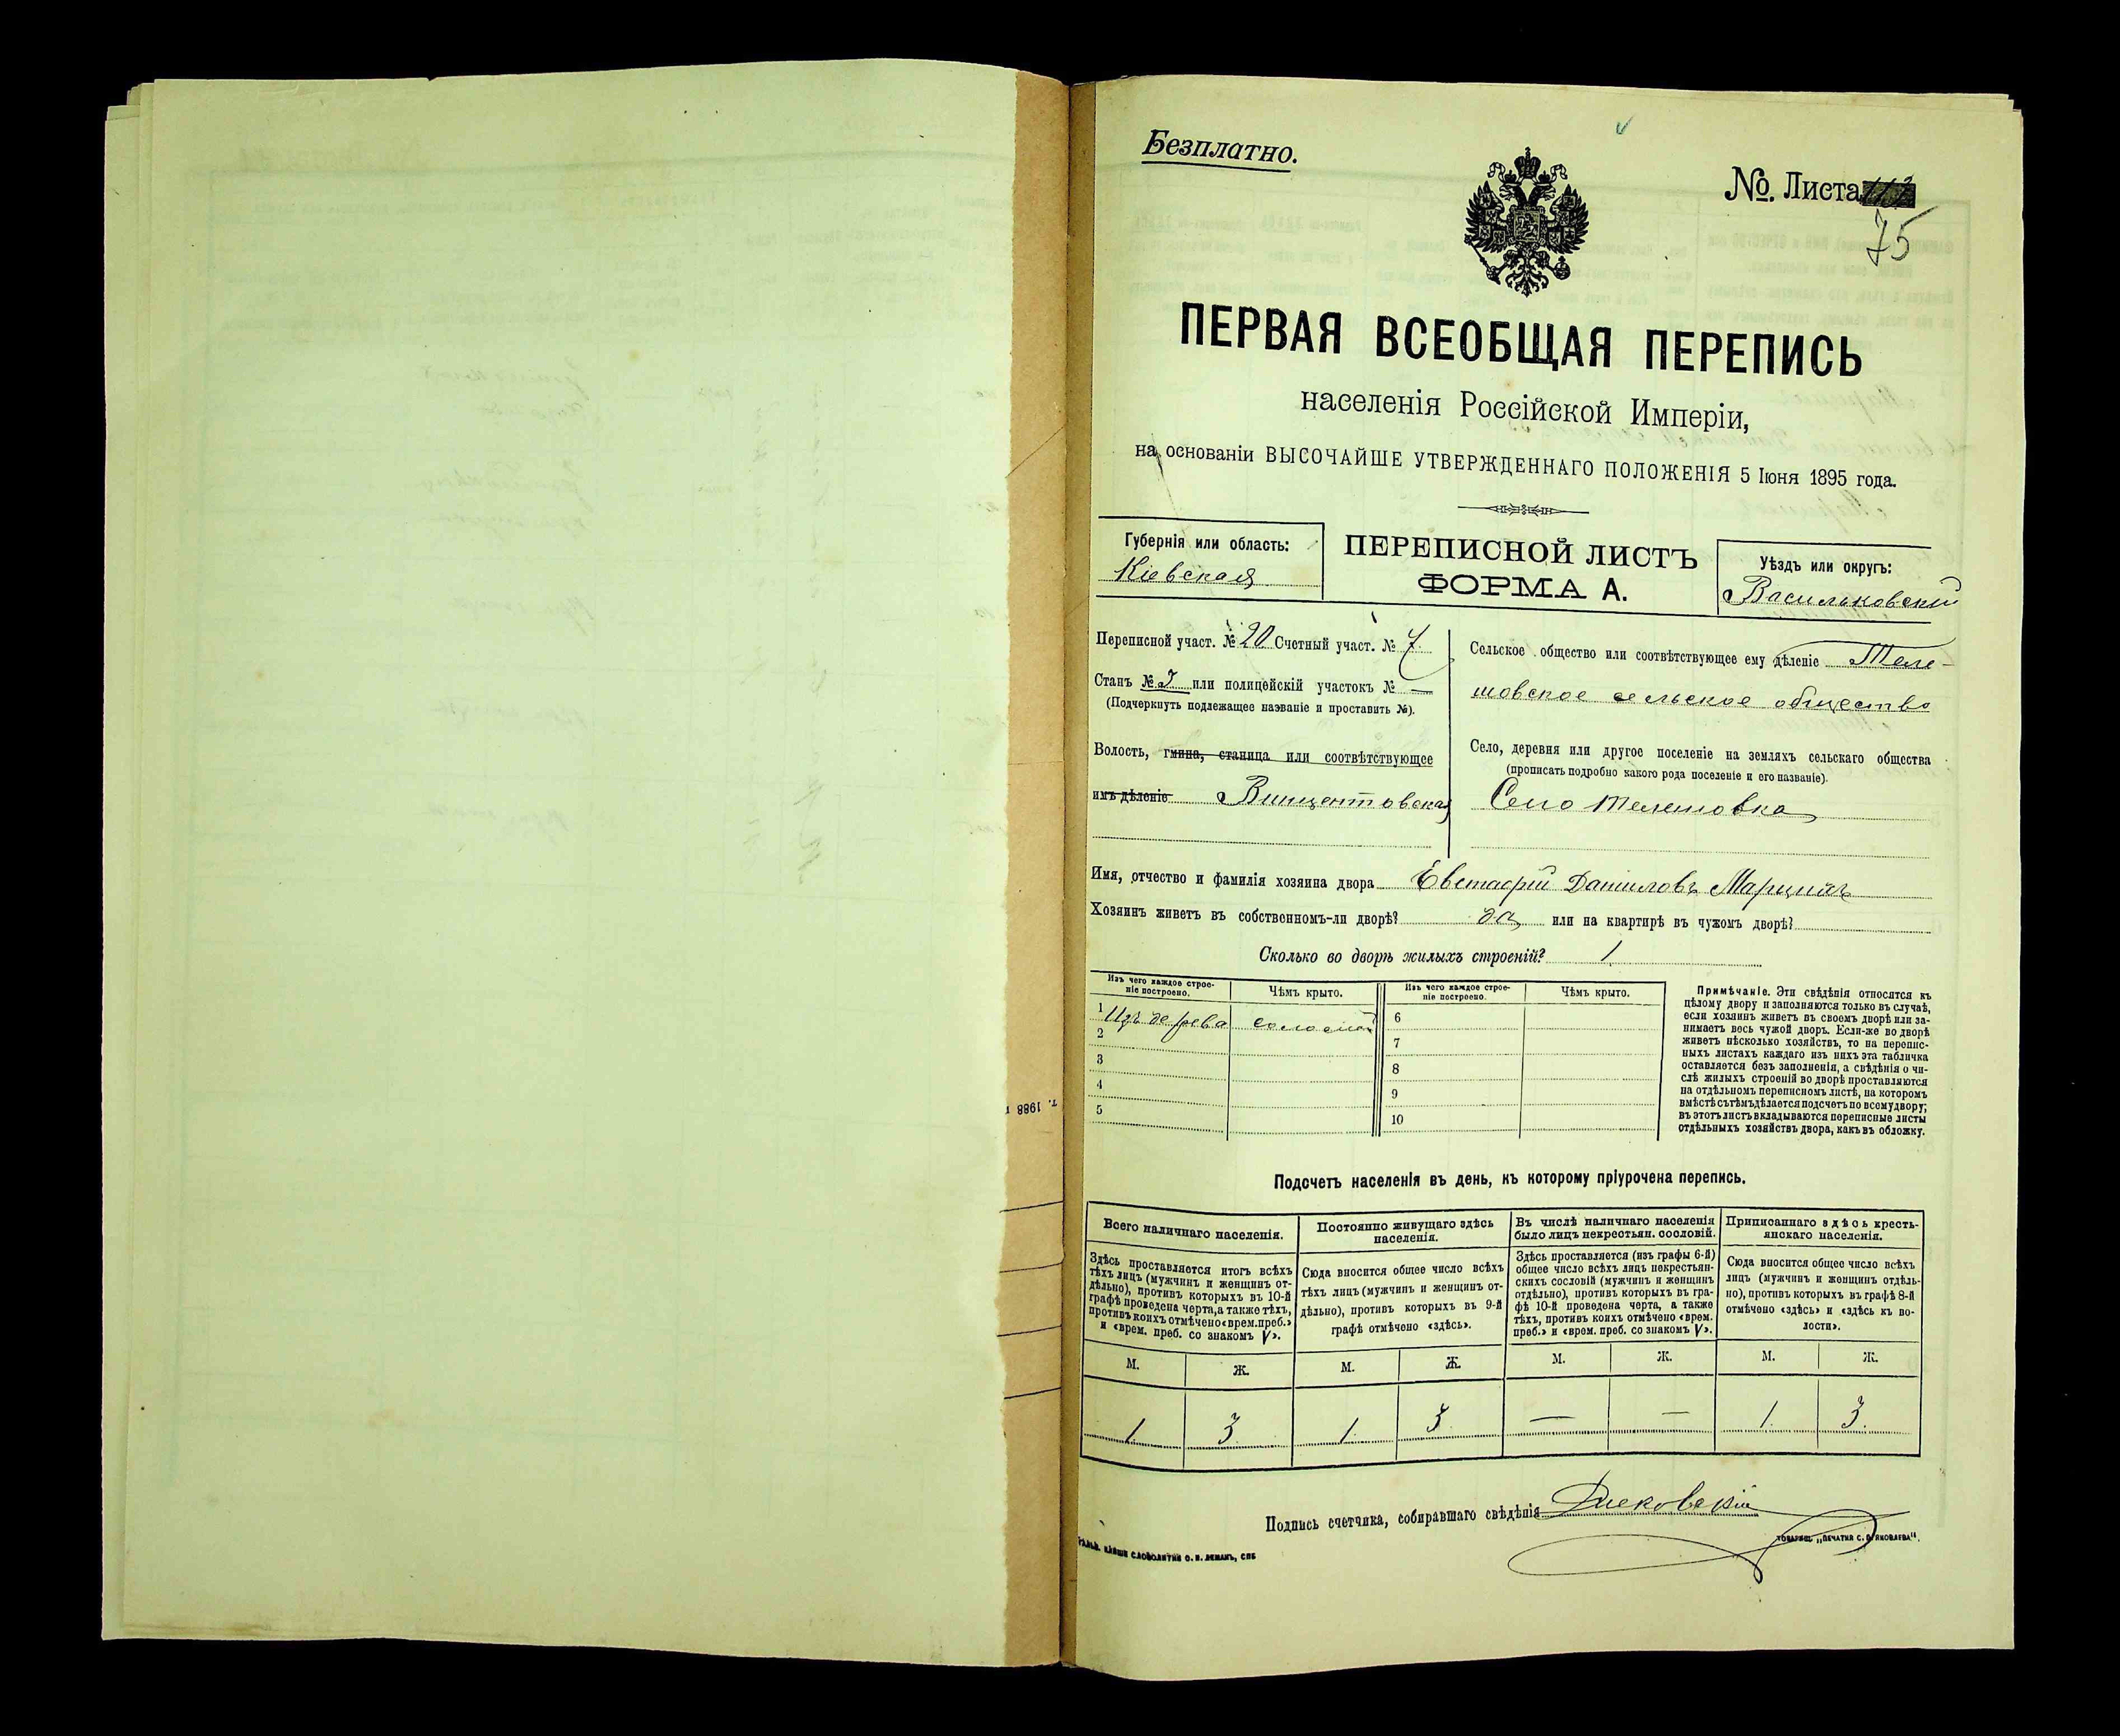 Безплатно.
№. Листа
75
ПЕРВАЯ ВСЕОБЩАЯ ПЕРЕПИСЬ
населенія Россійской Имперіи,
на основаніи ВЫСОЧАЙШЕ УТВЕРЖДЕННАГО ПОЛОЖЕНІЯ 5 Іюня 1895 года.
Губернія или область:
Кіевская
ПЕРЕПИСНОЙ ЛИСТЪ
ФОРМА А.
Уѣздъ или округъ:
Васильковскій
Переписной участ. № 20 Счетный участ. № 7
Станъ № или полицейскій участокъ № —
(Подчеркнуть подлежащее названіе и проставить №).
Волость, гмина, станица или соотвѣтствующее
имъ дѣленіе Винцентовская
Сельское общество или соотвѣтствующее ему дѣленіе Теле-
шовское сельское общество
Село, деревня или другое поселеніе на земляхъ сельскаго общества
(прописать подробно какого рода поселеніе и его названіе).
Село Телешовка
Имя, отчество и фамилія хозяина двора Евстафій Даниловъ
Хозяинъ живетъ въ собственномъ-ли дворѣ? да или на квартирѣ въ чужомъ дворѣ?
Сколько во дворѣ жилыхъ строеній? 1
Изъ чего каждое строе-
ніе построено.
Чѣмъ крыто.
Изъ чего каждое строе-
ніе построено.
Чѣмъ крыто.
1 Изъ дерева соломой 6
2 7
3 8
4 9
5 10
Примѣчаніе. Эти свѣдѣнія относятся къ
цѣлому двору и заполняются только въ случаѣ,
если хозяинъ живетъ въ своемъ дворѣ или за-
нимаетъ весь чужой дворъ. Если-же во дворѣ
живетъ нѣсколько хозяйствъ, то на перепис-
ныхъ листахъ каждаго изъ нихъ эта табличка
оставляется безъ заполненія, а свѣдѣнія о чи-
слѣ жилыхъ строеній во дворѣ проставляются
на отдѣльномъ переписномъ листѣ, на которомъ
вмѣстѣ съ тѣмъ дѣлается подсчетъ по всему двору;
въ этотъ листъ вкладываются переписные листы
отдѣльныхъ хозяйствъ двора, какъ въ обложку.
т. 1988 г
Подсчетъ населенія въ день, къ которому пріурочена перепись.
Всего наличнаго населенія.
Здѣсь проставляется итогъ всѣхъ
тѣхъ лицъ (мужчинъ и женщинъ от-
дѣльно), противъ которыхъ въ 10-й
графѣ проведена черта, а также тѣхъ,
противъ коихъ отмѣчено «врем. преб.»
и «врем. преб. со знакомъ V».
Постоянно живущаго здѣсь
населенія.
Сюда вносится общее число всѣхъ
тѣхъ лицъ (мужчинъ и женщинъ от-
дѣльно), противъ которыхъ въ 9-й
графѣ отмѣчено «здѣсь».
Въ числѣ наличнаго населенія
было лицъ некрестьян. сословій.
Здѣсь проставляется (изъ графы 6-й)
общее число всѣхъ лицъ некрестьян-
скихъ сословій (мужчинъ и женщинъ
отдѣльно), противъ которыхъ въ гра-
фѣ 10-й проведена черта, а также
тѣхъ, противъ коихъ отмѣчено «врем.
преб.» и «врем. преб. со знакомъ V».
Приписаннаго здѣсь кресть-
янскаго населенія.
Сюда вносится общее число всѣхъ
лицъ (мужчинъ и женщинъ отдѣль-
но), противъ которыхъ въ графѣ 8-й
отмѣчено «здѣсь» и «здѣсь къ во-
лости».
М. Ж. М. Ж. М. Ж. М. Ж.
1 3 1 3 — — 1 3
Подпись счетчика, собиравшаго свѣдѣнія
СЛОВОЛИТНЯ О. И. ЛЕМАНЪ, СПБ
ТОВАРИЩ. „ПЕЧАТНЯ С. П. ЯКОВЛЕВА“.